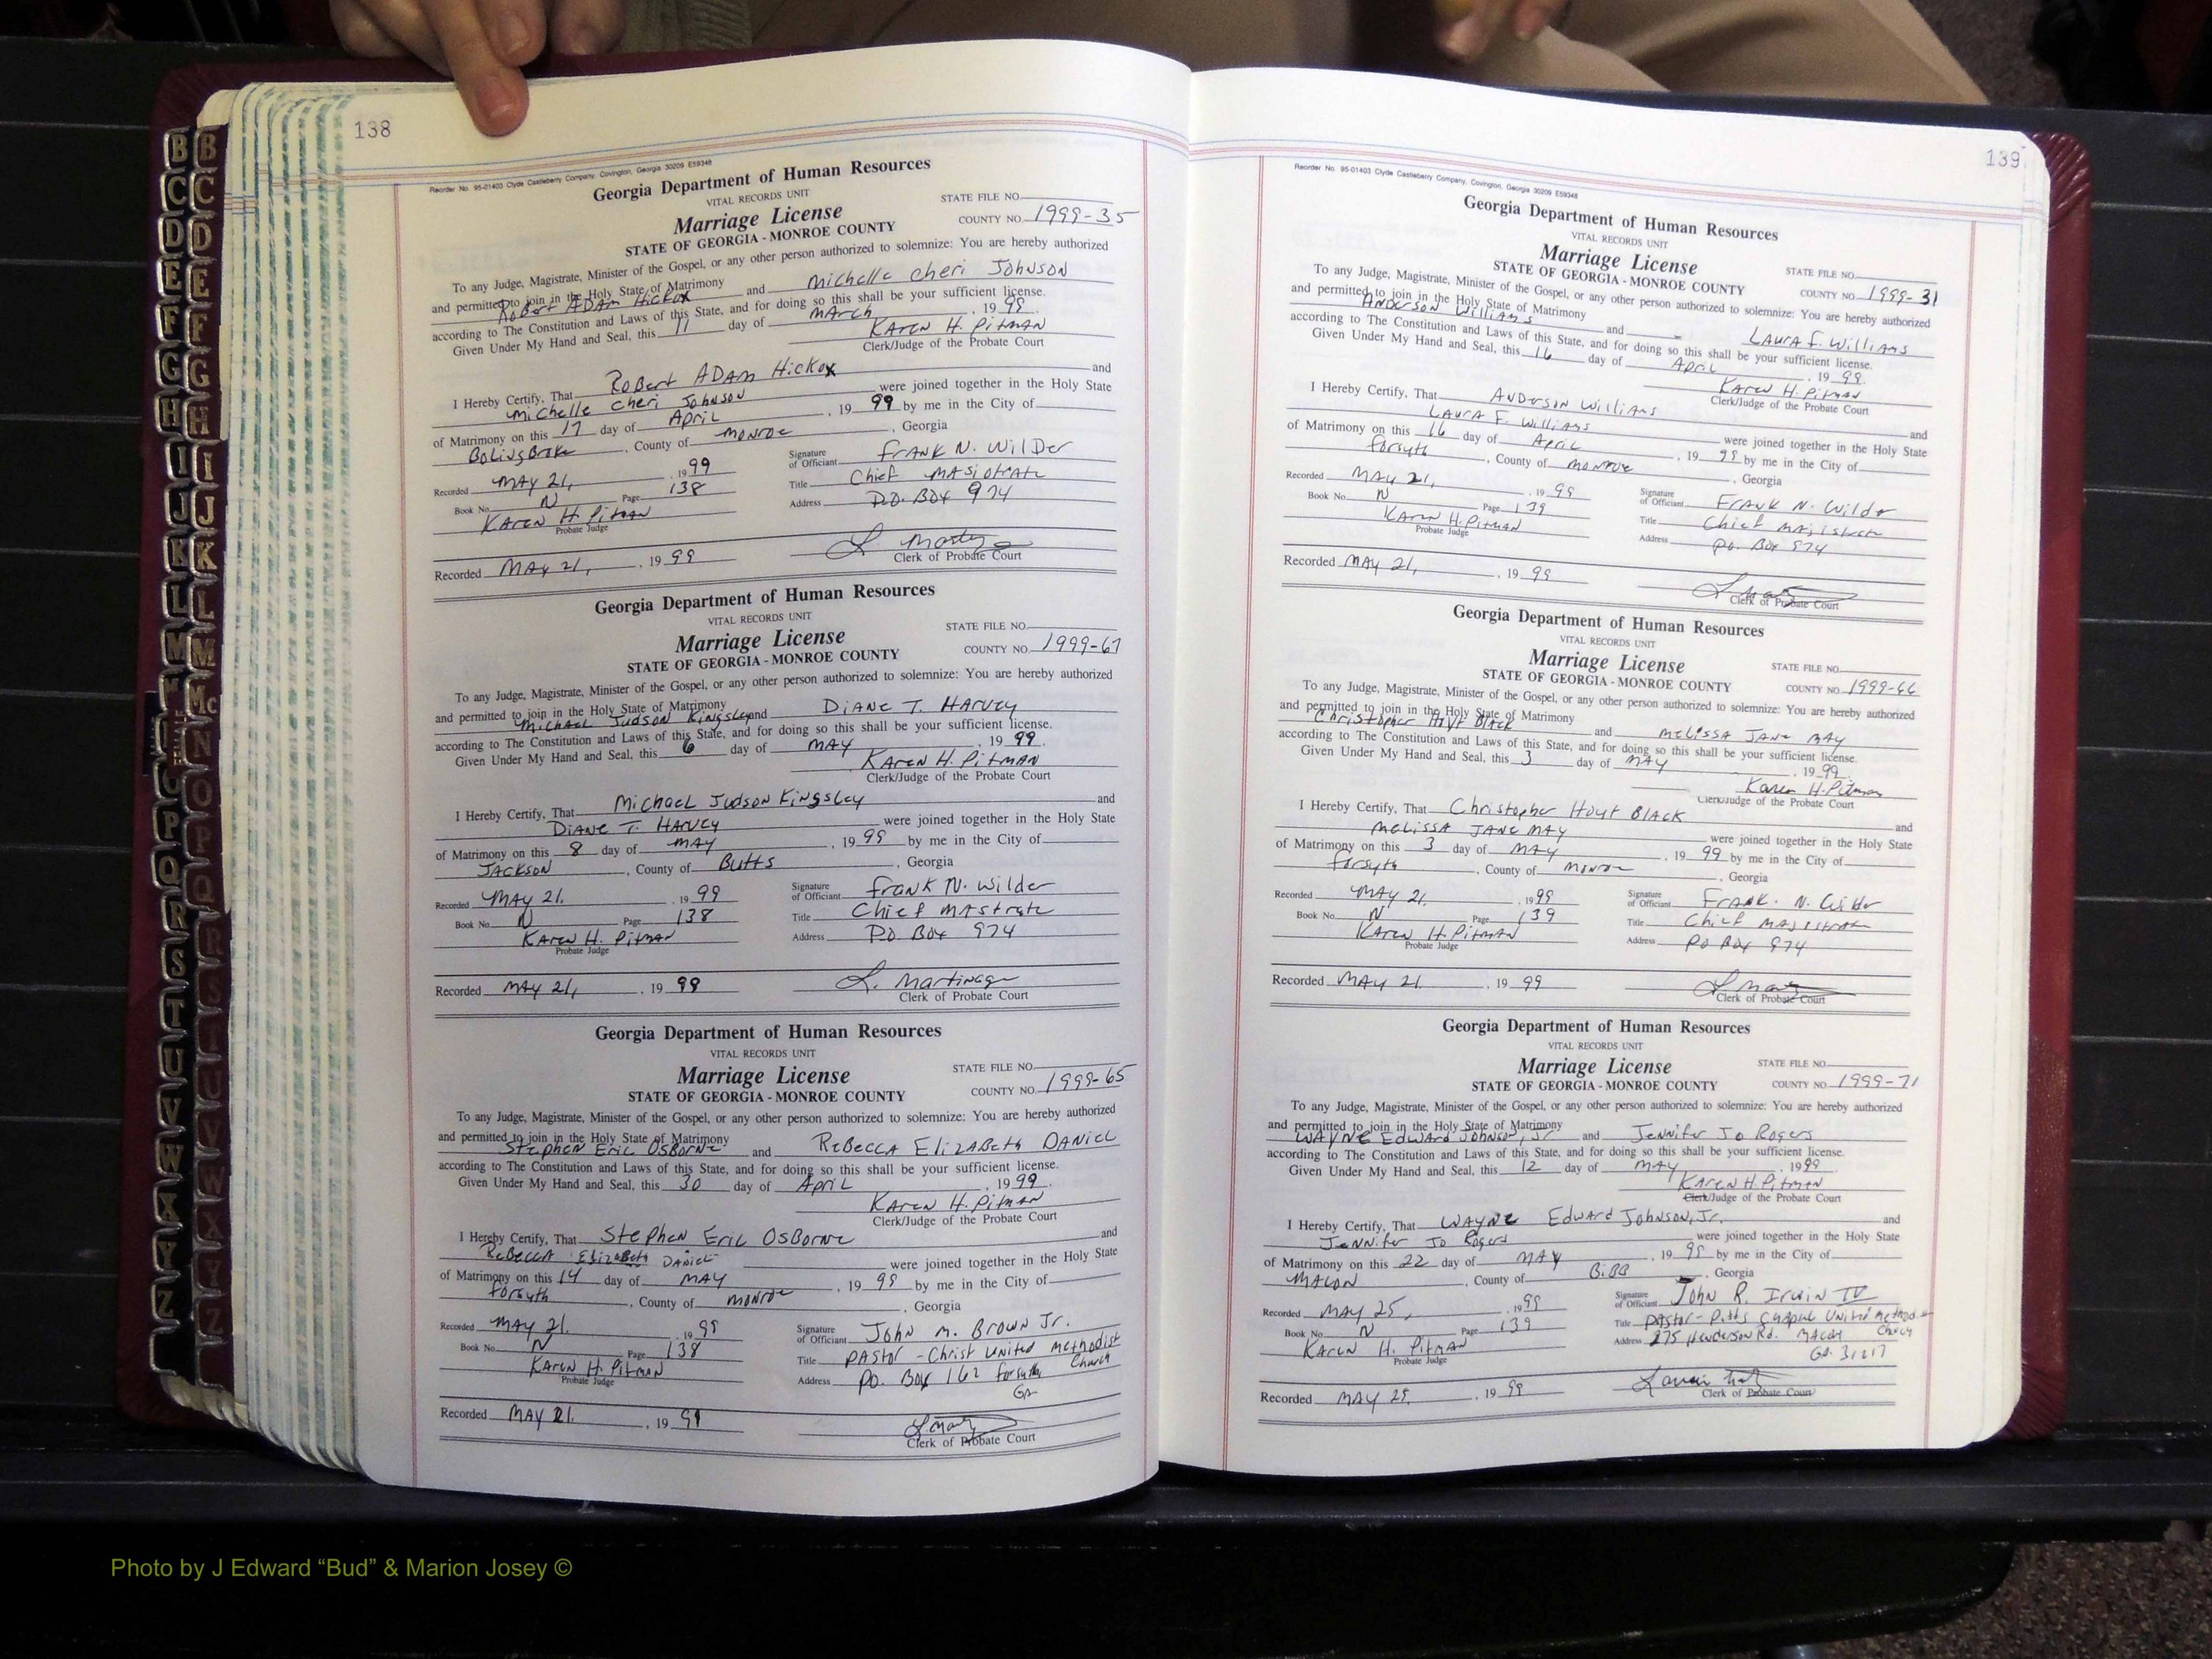 138
Reorder No. 95-01403 Clyde Castleberry Company, Covington, Georgia 30209 E59348
Georgia Department of Human Resources
VITAL RECORDS UNIT
Marriage License
STATE OF GEORGIA - MONROE COUNTY
STATE FILE NO.
COUNTY NO. 1999-35
To any Judge, Magistrate, Minister of the Gospel, or any other person authorized to solemnize: You are hereby authorized
and permitted to join in the Holy State of Matrimony
Robert ADAM Hickox and Michelle Cheri Johnson
according to The Constitution and Laws of this State, and for doing so this shall be your sufficient license.
Given Under My Hand and Seal, this 11 day of MArch, 19 99.
KAREN H. PitMAN
Clerk/Judge of the Probate Court
I Hereby Certify, That Robert ADAM Hickox and
Michelle Cheri Johnson were joined together in the Holy State
of Matrimony on this 17 day of April, 19 99 by me in the City of
BoLingBroke, County of MONROE, Georgia
Recorded MAY 21, 19 99
Book No. N Page 138
KAREN H. PitMAN
Probate Judge
Signature of Officiant FRANK N. WilDer
Title Chief MASiotrate
Address P.O. BOX 974
Recorded MAY 21, 19 99
Clerk of Probate Court
Georgia Department of Human Resources
VITAL RECORDS UNIT
Marriage License
STATE OF GEORGIA - MONROE COUNTY
STATE FILE NO.
COUNTY NO. 1999-67
To any Judge, Magistrate, Minister of the Gospel, or any other person authorized to solemnize: You are hereby authorized
and permitted to join in the Holy State of Matrimony
Michael Judson Kingsley and DIANE T. HARVEY
according to The Constitution and Laws of this State, and for doing so this shall be your sufficient license.
Given Under My Hand and Seal, this 6 day of MAY, 19 99.
KAREN H. PitMAN
Clerk/Judge of the Probate Court
I Hereby Certify, That Michael Judson Kingsley and
DIANE T. HARVEY were joined together in the Holy State
of Matrimony on this 8 day of MAY, 19 99 by me in the City of
JACKSON, County of Butts, Georgia
Recorded MAY 21, 19 99
Book No. N Page 138
KAREN H. PitMAN
Probate Judge
Signature of Officiant Frank N. Wilder
Title Chief MAstrate
Address P.O. BOX 974
Recorded MAY 21, 19 99
Clerk of Probate Court
Georgia Department of Human Resources
VITAL RECORDS UNIT
Marriage License
STATE OF GEORGIA - MONROE COUNTY
STATE FILE NO.
COUNTY NO. 1999-65
To any Judge, Magistrate, Minister of the Gospel, or any other person authorized to solemnize: You are hereby authorized
and permitted to join in the Holy State of Matrimony
Stephen Eric OSBorne and REBECCA ElizABeth DANIEL
according to The Constitution and Laws of this State, and for doing so this shall be your sufficient license.
Given Under My Hand and Seal, this 30 day of April, 19 99.
KAREN H. PitMAN
Clerk/Judge of the Probate Court
I Hereby Certify, That Stephen Eric OSBorne and
REBECCA ElizABeth DANIEL were joined together in the Holy State
of Matrimony on this 14 day of MAY, 19 99 by me in the City of
Forsyth, County of MONROE, Georgia
Recorded MAY 21, 19 99
Book No. N Page 138
KAREN H. PitMAN
Probate Judge
Signature of Officiant John M. Brown Jr.
Title PAStor - Christ United Methodist Church
Address P.O. Box 162 Forsyth GA
Recorded MAY 21, 19 99
Clerk of Probate Court
139
Reorder No. 95-01403 Clyde Castleberry Company, Covington, Georgia 30209 E59348
Georgia Department of Human Resources
VITAL RECORDS UNIT
Marriage License
STATE OF GEORGIA - MONROE COUNTY
STATE FILE NO.
COUNTY NO. 1999-31
To any Judge, Magistrate, Minister of the Gospel, or any other person authorized to solemnize: You are hereby authorized
and permitted to join in the Holy State of Matrimony
ANDerson WilliAms and LAURA F. WilliAms
according to The Constitution and Laws of this State, and for doing so this shall be your sufficient license.
Given Under My Hand and Seal, this 16 day of April, 19 99.
KAREN H. PitMAN
Clerk/Judge of the Probate Court
I Hereby Certify, That ANDerson WilliAms and
LAURA F. WilliAms were joined together in the Holy State
of Matrimony on this 16 day of April, 19 99 by me in the City of
Forsyth, County of MONROE, Georgia
Recorded MAY 21, 19 99
Book No. N Page 139
KAREN H. PitMAN
Probate Judge
Signature of Officiant FRANK N. Wilder
Title Chief MAgistrate
Address P.O. Box 974
Recorded MAY 21, 19 99
Clerk of Probate Court
Georgia Department of Human Resources
VITAL RECORDS UNIT
Marriage License
STATE OF GEORGIA - MONROE COUNTY
STATE FILE NO.
COUNTY NO. 1999-66
To any Judge, Magistrate, Minister of the Gospel, or any other person authorized to solemnize: You are hereby authorized
and permitted to join in the Holy State of Matrimony
Christopher Hoyt Black and MELISSA JANE MAY
according to The Constitution and Laws of this State, and for doing so this shall be your sufficient license.
Given Under My Hand and Seal, this 3 day of MAY, 19 99.
Karen H. Pitman
Clerk/Judge of the Probate Court
I Hereby Certify, That Christopher Hoyt BlAck and
MELISSA JANE MAY were joined together in the Holy State
of Matrimony on this 3 day of MAY, 19 99 by me in the City of
Forsyth, County of Monroe, Georgia
Recorded MAY 21, 19 99
Book No. N Page 139
KAREN H. PitMAN
Probate Judge
Signature of Officiant FRANK. N. Wilder
Title Chief MAgistrate
Address PO Box 974
Recorded MAY 21, 19 99
Clerk of Probate Court
Georgia Department of Human Resources
VITAL RECORDS UNIT
Marriage License
STATE OF GEORGIA - MONROE COUNTY
STATE FILE NO.
COUNTY NO. 1999-71
To any Judge, Magistrate, Minister of the Gospel, or any other person authorized to solemnize: You are hereby authorized
and permitted to join in the Holy State of Matrimony
WAYNE Edward Johnson, Jr. and Jennifer Jo Rogers
according to The Constitution and Laws of this State, and for doing so this shall be your sufficient license.
Given Under My Hand and Seal, this 12 day of MAY, 19 99.
KAREN H. PitMAN
Clerk/Judge of the Probate Court
I Hereby Certify, That WAYNE Edward Johnson, Jr. and
Jennifer Jo Rogers were joined together in the Holy State
of Matrimony on this 22 day of MAY, 19 99 by me in the City of
MACON, County of BiBB, Georgia
Recorded MAY 25, 19 99
Book No. N Page 139
KAREN H. PitMAN
Probate Judge
Signature of Officiant John R. Irwin IV
Title PAStor - Pitts Chapel United Methodist Church
Address 275 Henderson Rd. MACON GA. 31217
Recorded MAY 25, 19 99
Clerk of Probate Court
B C D E F G H I J K L M Mc N O P Q R S T U V W X Y Z
Photo by J Edward “Bud” & Marion Josey ©